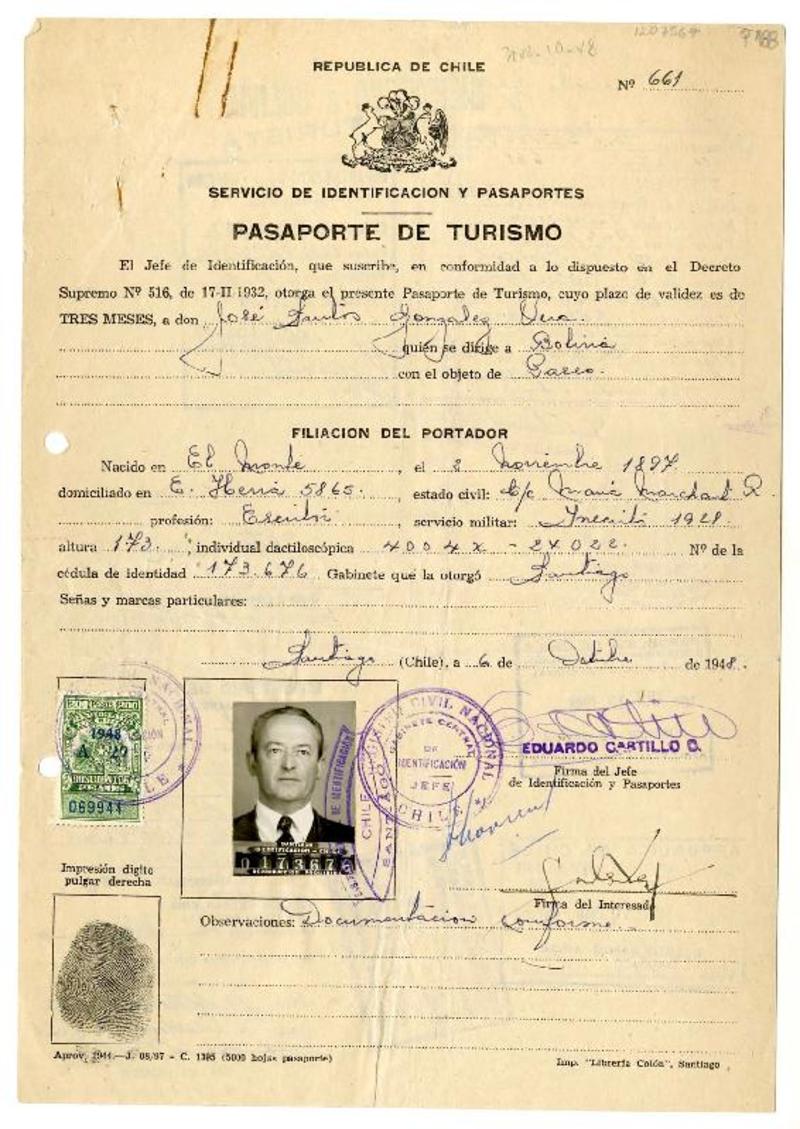 1207564
REPUBLICA DE CHILE
Nº 661
SERVICIO DE IDENTIFICACION Y PASAPORTES
PASAPORTE DE TURISMO
El Jefe de Identificación, que suscribe, en conformidad a lo dispuesto en el Decreto
Supremo Nº 516, de 17-II-1932, otorga el presente Pasaporte de Turismo, cuyo plazo de validez es de
TRES MESES, a don José Santos Gonzalez Vera
quién se dirige a Bolivia
con el objeto de Paseo.
FILIACION DEL PORTADOR
Nacido en El Monte, el 2 Noviembre 1897.
domiciliado en E. 5865., estado civil: c/c María Marchant R.
profesión: Escritor, servicio militar: 1921.
altura 173., individual dactiloscópica Nº de la
cédula de identidad 173.676 Gabinete que la otorgó Santiago
Señas y marcas particulares:
Santiago (Chile), a 6 de Octubre de 1948.
1948
069944
REGISTRO CIVIL NACIONAL
GABINETE CENTRAL
DE
IDENTIFICACIÓN
JEFE
CHILE
DE IDENTIFICACIÓN
CHILE
SANTIAGO
EDUARDO CARTILLO C.
Firma del Jefe
de Identificación y Pasaportes
0173676
Impresión dígito
pulgar derecha
Firma del Interesado
Observaciones: Documentación conforme.
Aprov. 1944.—J. 08/97 - C. 1395 (5000 hojas pasaporte)
Imp. "Librería Colón", Santiago